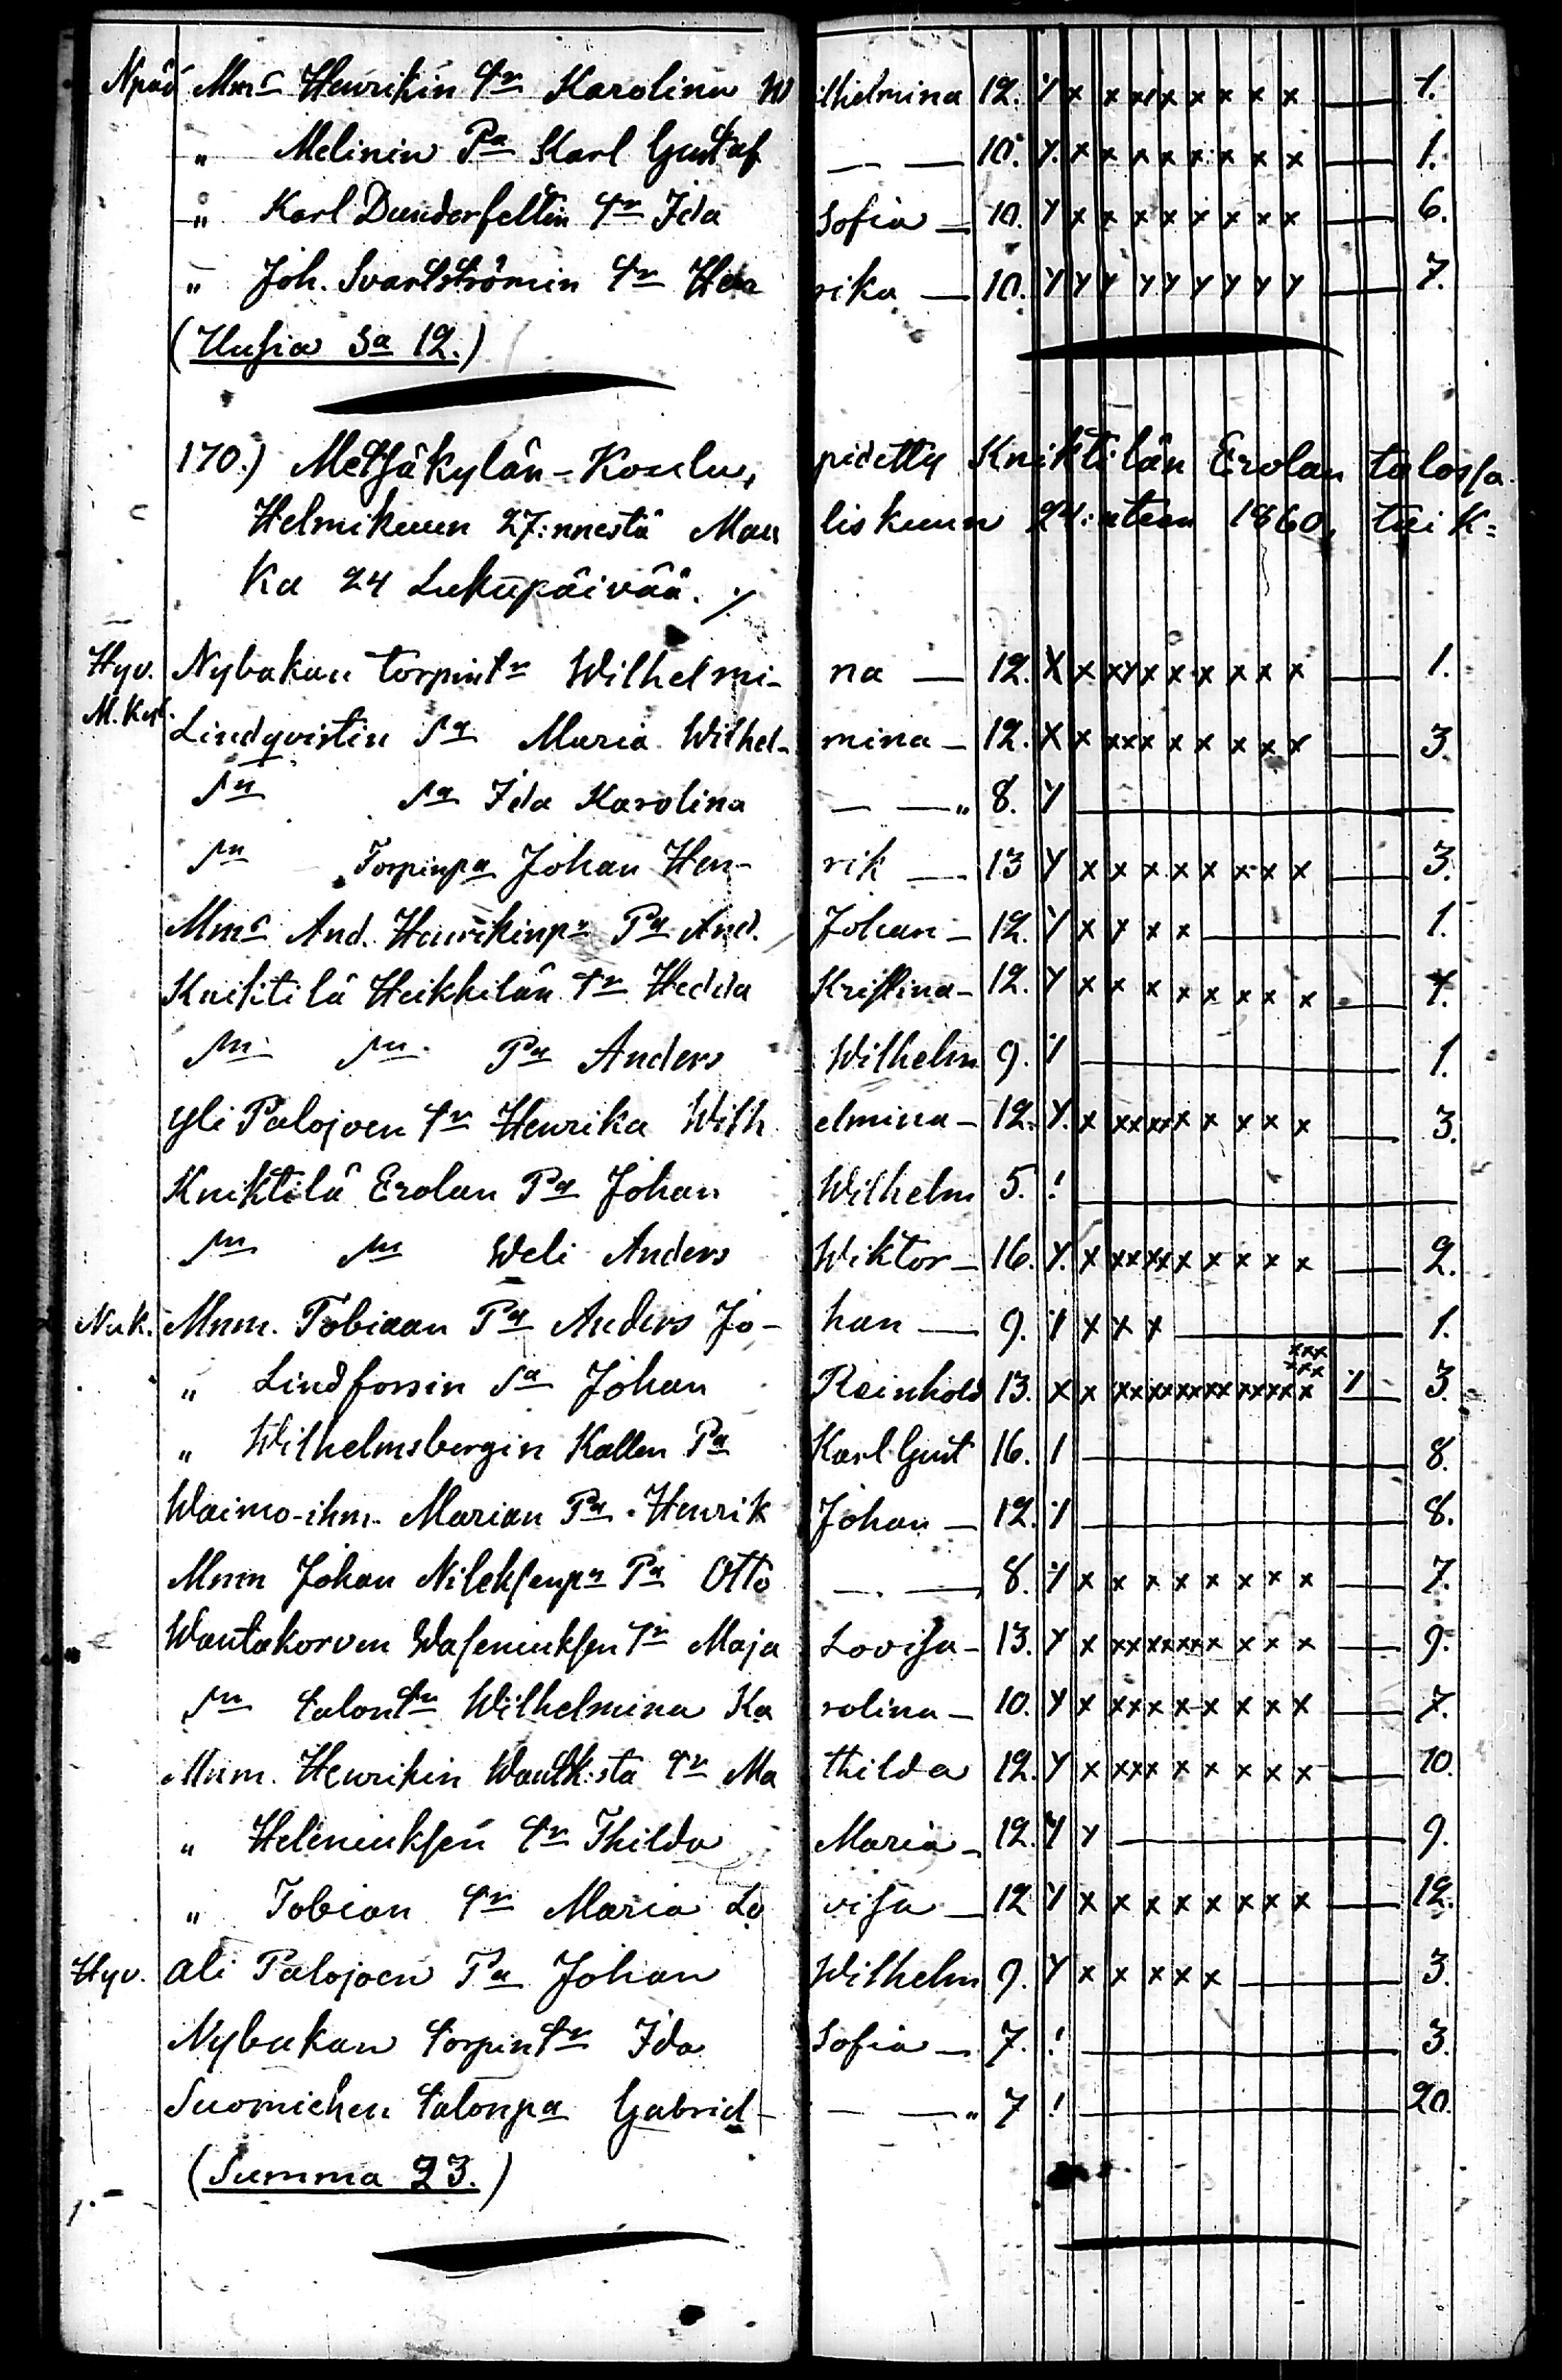 Npää Mmc Henrikin Tr Karolina Wilhelmina 12. 1.
" Melinin Pa Karl Gustaf — — 10. 1.
" Karl Dunderfeltin Tr Ida Sofia — 10. 6.
" Joh. Svartströmin Tr Henrika — 10. 7.
(Usia Sa 12.)
170.) Metsäkylän-Koulu, pidetty Kniktilän Erolan talossa
Helmikuun 27:nnestä Maaliskuun 24:nteen 1860, täi K=
Ka 24 Lukupäivää.
Hyv. Nybakan torpintr Wilhelmi-na — 12. 1.
M. Kyl. Lindqvistin Sa Maria Wilhel-mina — 12. 3.
Sn Sa Ida Karolina — — " 8.
Sn Torpinpa Johan Hen-rik — 13 3.
Mmc And. Henrikinpn Pa And. Johan — 12. 1.
Kniktilä Heikkilän Tr Hedda Kristina — 12. 1.
Sn Sn Pa Anders Wilhelm 9. 1.
Yli Palojoen Tr Henrika Wilhelmina — 12. 3.
Kniktilä Erolan Pa Johan Wilhelm 5.
Sn Sn Weli Anders Wiktor — 16. 2.
Nuk. Mnm. Tobiaan Pa Anders Jo-han — 9. 1.
" Lindforsin Sa Johan Reinhold 13. 3.
" Wilhelmsbergin Kallen Pa Karl Gust 16. 8.
Waimo-ihm. Marian Pa Henrik Johan — 12. 8.
Mnm Johan Nileksenpn Pa Otto — — 8. 7.
Wantakorven Waseniuksen Tr Maja Lovisa — 13. 9.
Sn talontr Wilhelmina Karolina — 10. 7.
Mnm. Henrikin Wantk:sta Tr Mathilda 12. 10.
" Heleniuksen Tr Thilda Maria — 12. 9.
" Tobian Tr Maria Lovisa — 12 12.
Hyv. Ali Palojoen Pa Johan Wilhelm 9. 3.
Nybakan torpintr Ida Sofia — 7. 3.
Suomichen talonpa Gabriel — — — " 7 20.
(Summa 23.)